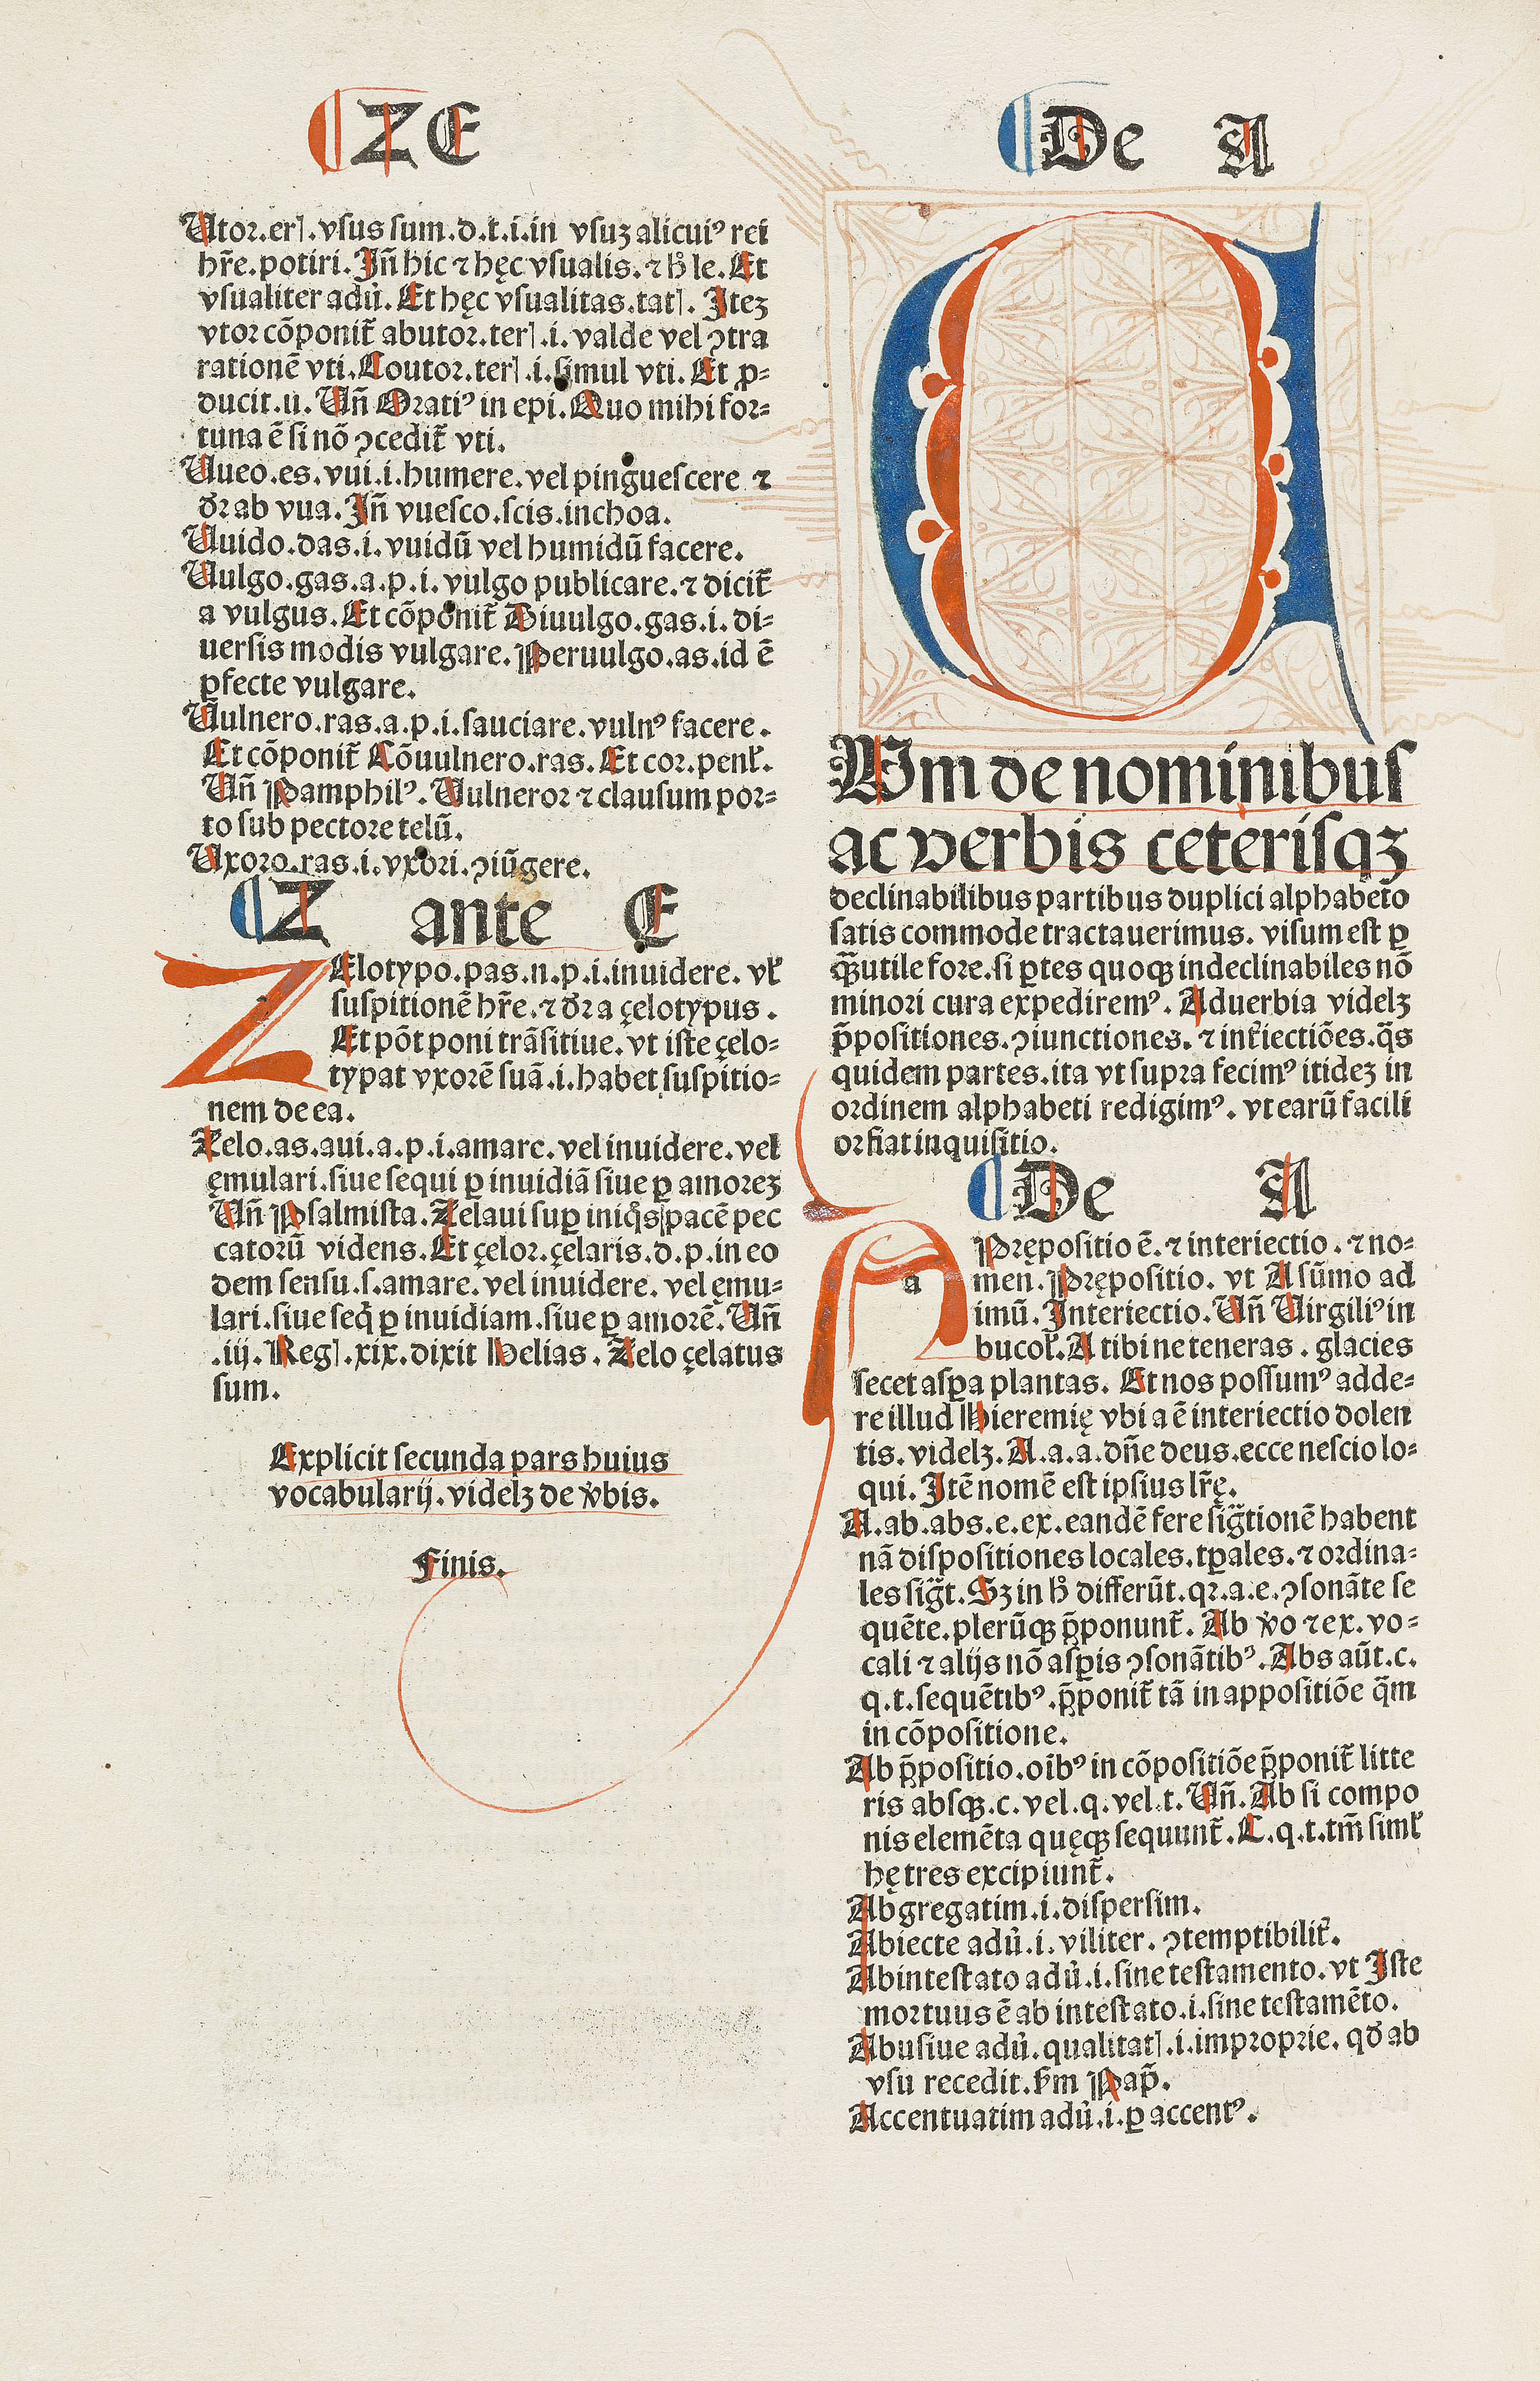 ZE
Utor.erꝭ.vsus sum.d.t.i.in vsuꝫ alicuiꝰ rei
hr̄e.potiri.Jn̄ hic ⁊ hęc vsualis.⁊ hͦ le.Et
vsualiter adu̇.Et hęc vsualitas.tatꝭ.Jteꝫ
vtor cōponit̄ abutor.terꝭ.i.valde vel ꝯtra
rationē vti.Coutor.terꝭ.i.simul vti.Et ꝓ⸗
ducit.u.Un̄ Oratiꝰ in epi.Quo mihi for⸗
tuna ē si nō ꝯcedit̄ vti.
Uueo.es.vui.i.humere.vel pinguescere ⁊
dr̄ ab vua.Jn̄ vuesco.scis.inchoa.
Uuido.das.i.vuidū vel humidū facere.
Uulgo.gas.a.p.i.vulgo publicare.⁊ dicit̄
a vulgus.Et cōponit̄ Diuulgo.gas.i.di⸗
uersis modis vulgare.Peruulgo.as.id ē
ꝑfecte vulgare.
Uulnero.ras.a.p.i.sauciare.vulnꝰ facere.
Et cōponit̄ Cōuulnero.ras.Et cor.penl̄.
Un̄ Pamphilꝰ.Uulneror ⁊ clausum por⸗
to sub pectore telū.
Uxoro.ras.i.vxori.ꝯiūgere.
Z ante E
ZElotypo.pas.n.p.i.inuidere.vl̄
suspitionē hr̄e.⁊ dr̄ a çelotypus.
Et pōt poni trāsitiue.vt iste çelo⸗
typat vxorē suā.i.habet suspitio⸗
nem de ea.
Zelo.as.aui.a.p.i.amare.vel inuidere.vel
ęmulari.siue sequi ꝑ inuidiā siue ꝑ amoreꝫ
Un̄ Psalmista.Zelaui suꝑ iniq̄s pacē pec
catorū videns.Et çelor.çelaris.d.p.in eo
dem sensu.s.amare.vel inuidere.vel ęmu⸗
lari.siue seq̄ ꝑ inuidiam.siue ꝑ amorē.Un̄
.iij.Regꝭ.xix.dixit Helias.Zelo çelatus
sum.
Explicit secunda pars huius
vocabularij.videlꝫ de v̇bis.
Finis.
De A
Um de nominibus
ac verbis ceterisqꝫ
declinabilibus partibus duplici alphabeto
satis commode tractauerimus.visum est ꝑ
qꝫ̄utile fore.si ꝑtes quoqꝫ indeclinabiles nō
minori cura expediremꝰ.Aduerbia videlꝫ
p̄positiones.ꝯiunctiones.⁊ int̄iectiōes.q̄s
quidem partes.ita vt supra fecimꝰ itideꝫ in
ordinem alphabeti redigimꝰ.vt earū facili
or fiat inquisitio.
De A
a Prępositio ē.⁊ interiectio.⁊ no⸗
men.Prępositio.vt A sūmo ad
imū.Interiectio.Un̄ Uirgiliꝰ in
bucol̄.A tibi ne teneras.glacies
secet asꝑa plantas.Et nos possumꝰ adde⸗
re illud Hieremię vbi a ē interiectio dolen
tis.videlꝫ.A.a.a.dn̄e deus.ecce nescio lo⸗
qui.Jtē nomē est ipsius lr̄ę.
A.ab.abs.e.ex.eandē fere siḡtionē habent
nā dispositiones locales.tꝑales.⁊ ordina⸗
les siḡt.Sꝫ in hͦ differūt.qꝛ.a.e.ꝯsonāte se
quēte.plerūqꝫ p̄ponunt̄.Ab v̇o ⁊ ex.vo⸗
cali ⁊ alijs nō asꝑis ꝯsonātibꝰ.Abs aūt.c.
q.t.sequētibꝰ.p̄ponit̄ tā in appositiōe q̄m
in cōpositione.
Ab p̄positio.oībꝰ in cōpositiōe p̄ponit̄ litte
ris absqꝫ.c.vel.q.vel.t.Un̄.Ab si compo
nis elemēta quęqꝫ sequunt̄.C.q.t.tm̄ siml̄
hę tres excipiunt̄.
Abgregatim.i.dispersim.
Abiecte adu̇.i.viliter.ꝯtemptibilit̄.
Abintestato adu̇.i.sine testamento.vt Jste
mortuus ē ab intestato.i.sine testamēto.
Abusiue adu̇.qualitatꝭ.i.improprie.qd̄ ab
vsu recedit.ẜm Pap̄.
Accentuatim adu̇.i.ꝑ accentꝰ.